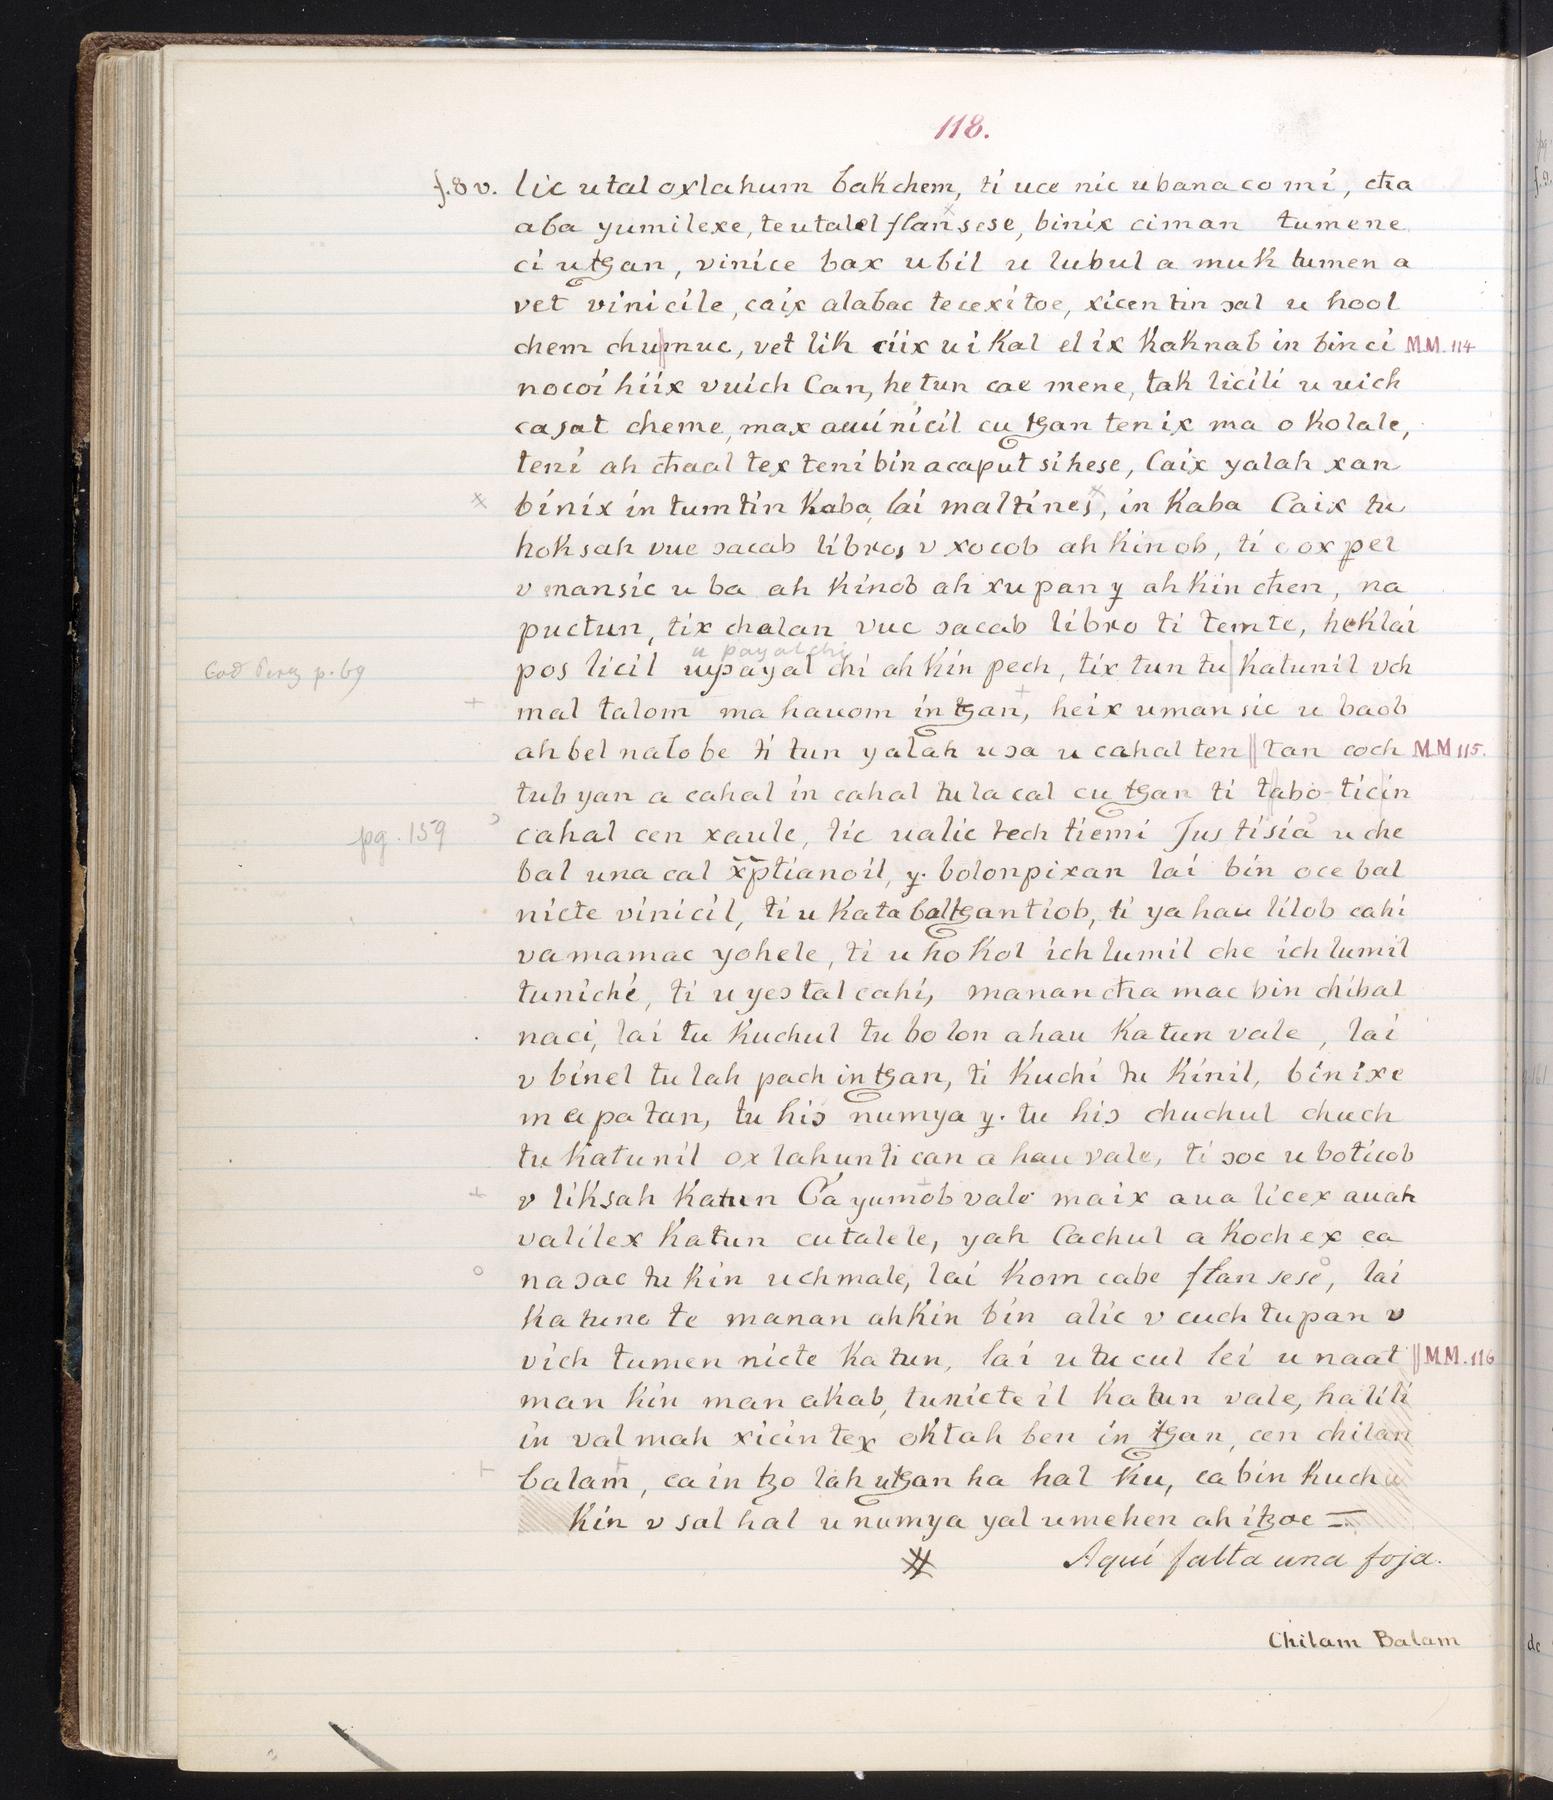 118.
f.8 v. lic utal oxlahum bakchem, ti uce nic ubanacomi, cħa
aba yumilexe, te utalel flansese, binix ciman tumene
ci utħan, vinice bax ubil u lubul a muk tumen a
vet vinicile, caix alabac tecexitoe, xicen tin ɔal u hool
chem chumuc, vet lik ciix ui kal elix kaknab in binci M.M. 114
nocoi hiix vuich Can, he tun cae mene, tak licili u uich
casat cheme, max auinicil cu tħan ten ix ma okolale,
teni ah cħaal tex teni bin a caput sihese, Caix yalah xan
binix in tumtin kaba, lai maltines, in kaba Caix tu
hoksah vue ɔacab libros v xocob ah kinob, ti c oxpel
v mansic u ba ah kinob ah xupan y ah kin cħen, na
puctun, tix chalan vuc ɔacab libro ti temte, heklai
u payalchi
pos licil uypayal chi ah kin pech, tix tun tu katunil vch
Cod Perez p. 69
mal talom ma hauom in tħan, heix umansic u baob
ah bel nalobe ti tun yalah uɔa u cahal ten || tan coch M.M 115.
tub yan a cahal in cahal tulacal cu tħan ti tabo-ticin
pg. 159 cahal cen xaule, lic ualic tech tiemi Justisia uche
bal una cal xp̄tianoil, y. bolonpixan lai bin oce bal
nicte vinicil, ti u kata baltħantiob, ti yahau lilob cahi
vamamac yohele, ti u hokol ich lumil che ich lumil
tuniché, ti u yeɔtal cahi, manan cħa mac bin chibal
naci, lai tu kuchul tu bolon ahau katun vale, lai
v binel tulah pach in tħan, ti kuchi tu kinil, binixe
mapatan, tu hiɔ numya y. tu hiɔ chuchul chuch
tu katunil oxlahunti can ahau vale, ti ɔoc u boticob
v liksah katun Ca yumob vale maix aua licex auah
valilex katun cutalele, yah Cachul a kochex ca
naɔac tu kin uchmale, lai kom cabe flansese, lai
katuno te manan ahkin bin alic v cuch tupan v
vich tumen nicte katun, lai u tucul lei u naat || M.M. 116
man kin man akab, tunicte il katun vale, halili
in val mah xicin tex oktah ben in tħan, cen chilan
balam, ca in tzo lah utħan ha hal ku, ca bin kuch u
kin v sal hal u numya yal umehen ah itzoe =
Aquí falta una foja.
Chilam Balam